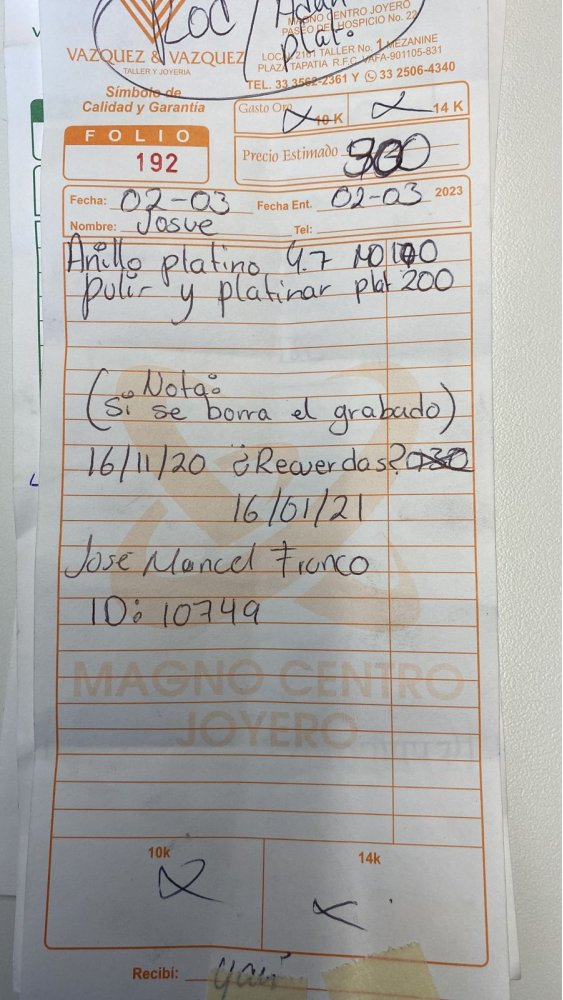 LOC / Adan
plat.
VAZQUEZ & VAZQUEZ
TALLER Y JOYERIA
MAGNO CENTRO JOYERO
PASEO DEL HOSPICIO No. 22
LOCAL 2161 TALLER No. 1 MEZANINE
PLAZA TAPATIA R.F.C. VAFA-901105-831
TEL. 33 3562-2361 Y 33 2506-4340
Símbolo de
Calidad y Garantía
Gasto Oro 10 K 14 K
FOLIO
192
Precio Estimado 300
Fecha: 02-03 Fecha Ent. 02-03 2023
Nombre: Josue Tel:
Anillo platino 4.7 NO 100
pulir y platinar plat 200
(Nota:
si se borra el grabado)
16/11/20 ¿Recuerdas?
16/01/21
José Manuel Franco
ID: 10749
MAGNO CENTRO
JOYERO
10k 14k
Recibí: yari